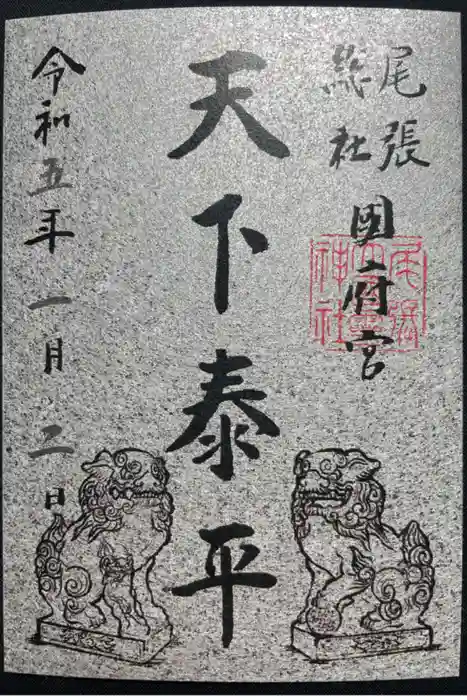 尾張
総社
國府宮
尾張大國霊神社
天下泰平
令和五年一月二日